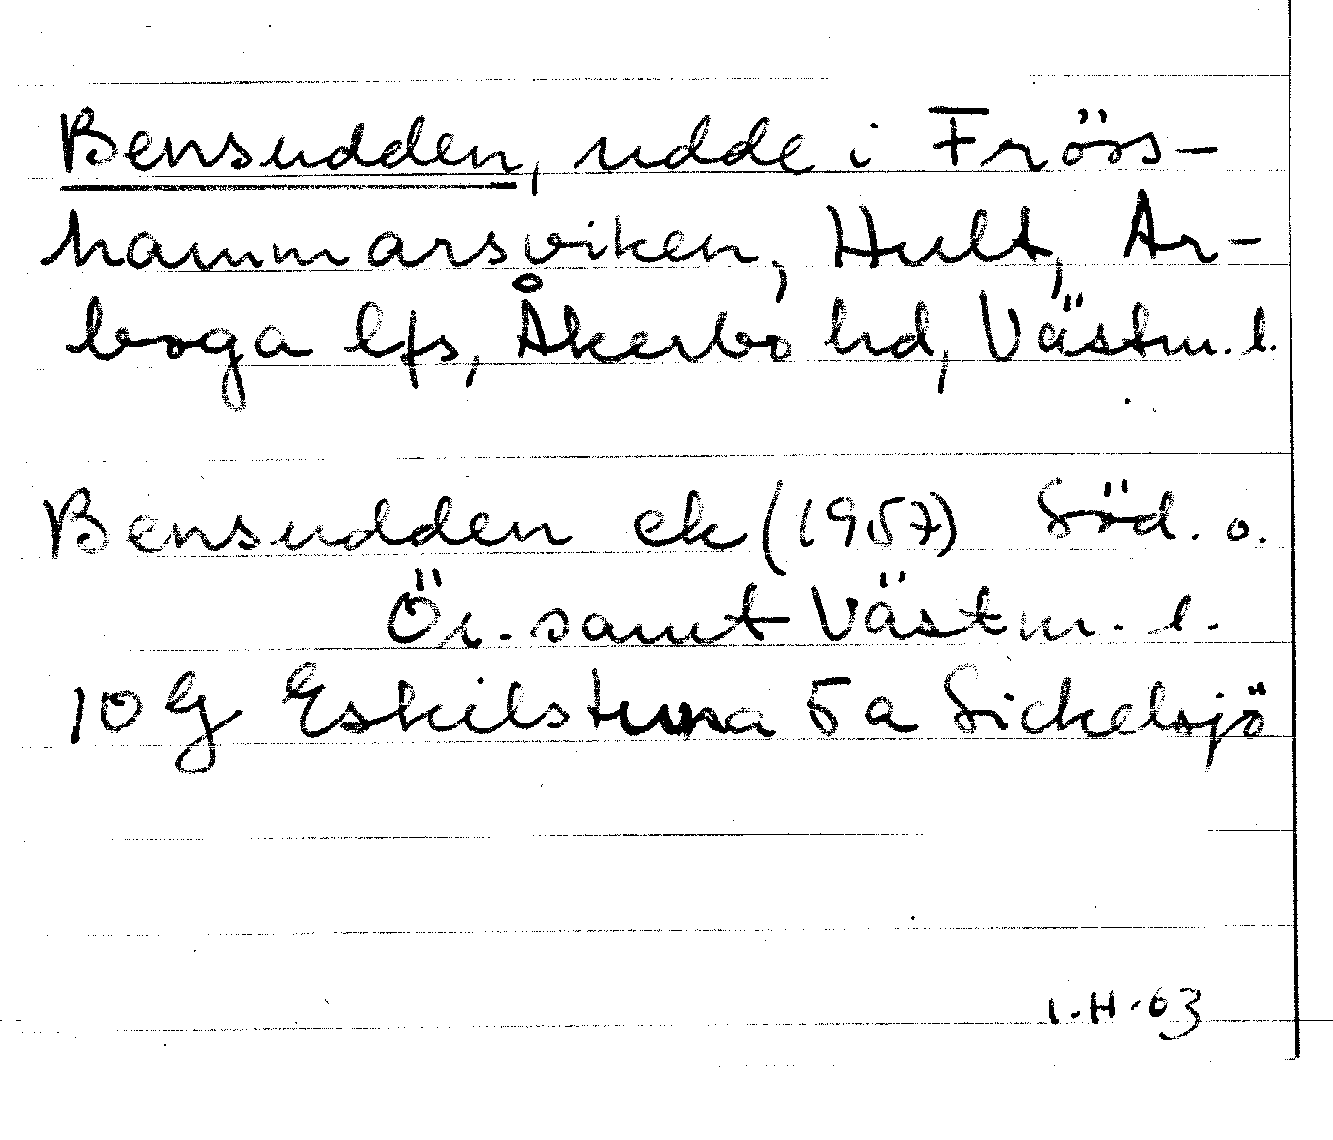 Bensudden, udde i Frös-
hammarsviken, Hult, Ar-
boga lfs, Åkerbo hd, Västm. l.
Bensudden ek (1957) Söd. o.
Ör. samt Västm. l.
10 G Eskilstuna 5 a Sickelsjö
I.H.63